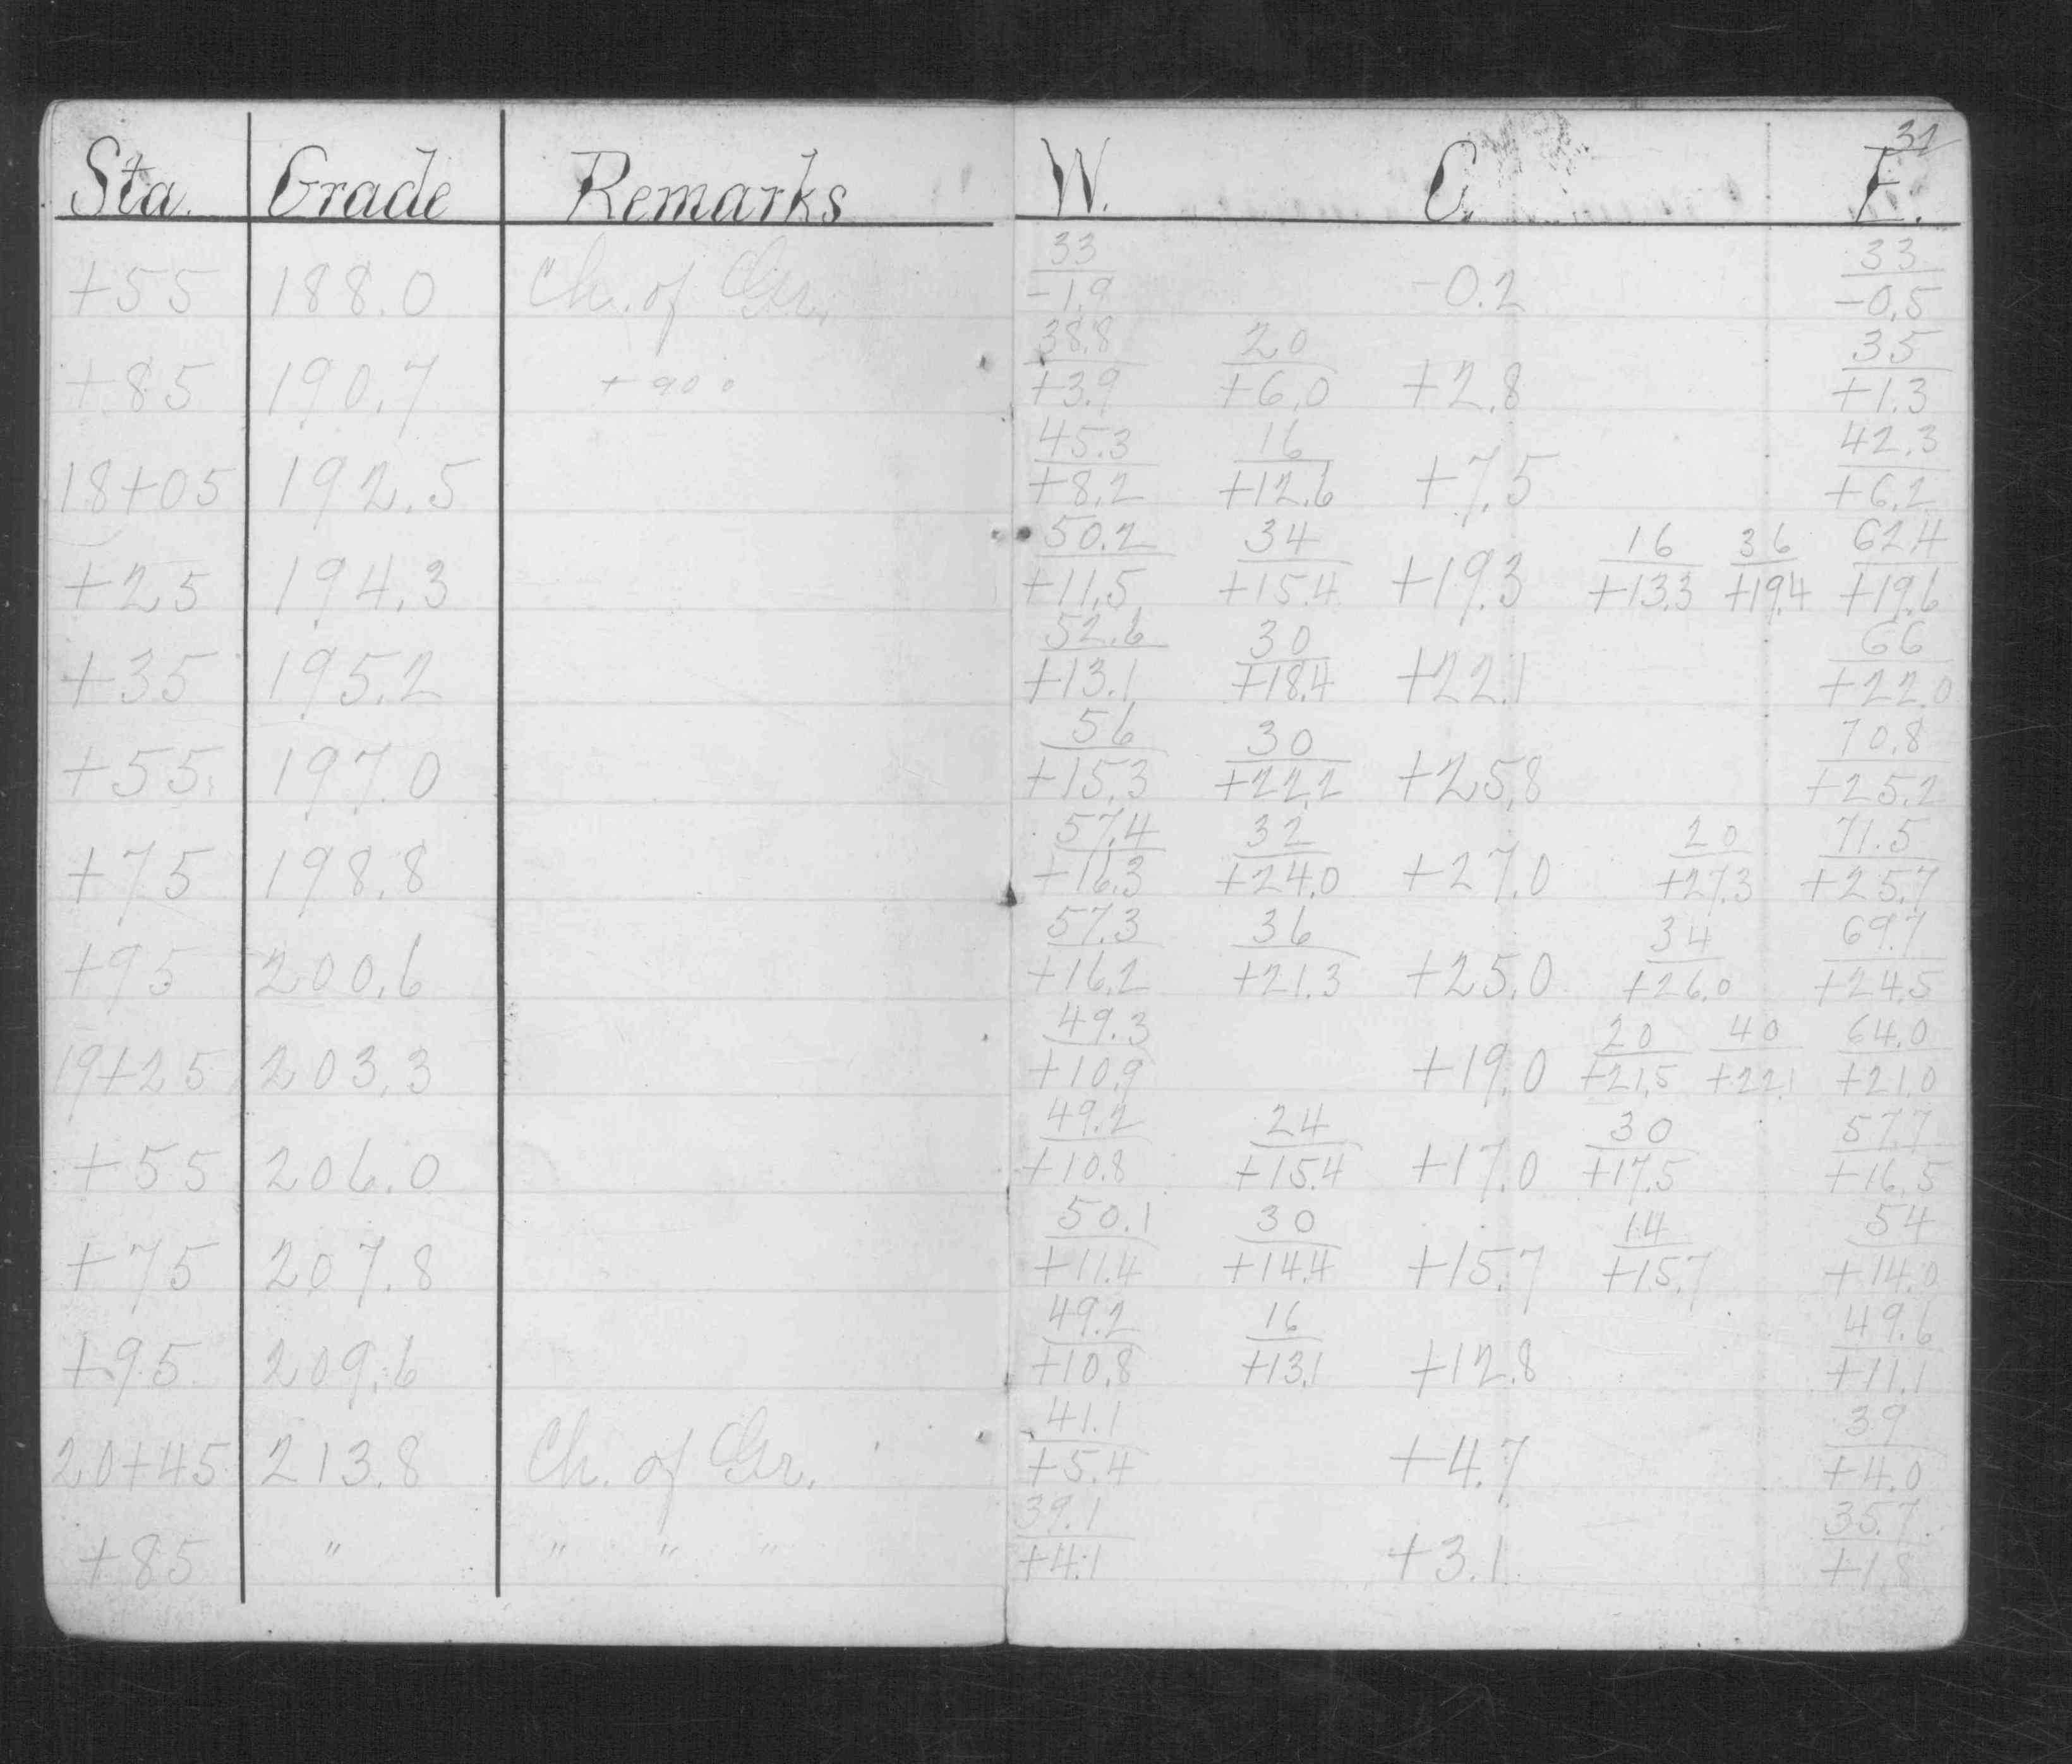 31
Sta. Grade Remarks W. C. E.
33 33
+55 188.0 Ch. of Gr. -1.9 -0.2 -0.5
38.8 20 35
+85 190.7 +90 0 +3.9 +6.0 +2.8 +1.3
45.3 16 42.3
18+05 192.5 +8.2 +12.6 +7.5 +6.2
50.2 34 16 36 62.4
+25 194.3 +11.5 +15.4 +19.3 +13.3 +19.4 +19.6
52.6 30 66
+35 195.2 +13.1 +18.4 +22.1 +22.0
56 30 70.8
+55 197.0 +15.3 +22.2 +25.8 +25.2
57.4 32 20 71.5
+75 198.8 +16.3 +24.0 +27.0 +27.3 +25.7
57.3 36 34 69.7
+95 200.6 +16.2 +21.3 +25.0 +26.0 +24.5
49.3 20 40 64.0
19+25 203.3 +10.9 +19.0 +21.5 +22.1 +21.0
49.2 24 30 57.7
+55 206.0 +10.8 +15.4 +17.0 +17.5 +16.5
50.1 30 14 54
+75 207.8 +11.4 +14.4 +15.7 +15.7 +14.0
49.2 16 49.6
+95 209.6 +10.8 +13.1 +12.8 +11.1
41.1 39
20+45 213.8 Ch. of Gr. +5.4 +4.7 +4.0
39.1 35.7
+85 " " " " +4.1 +3.1 +1.8